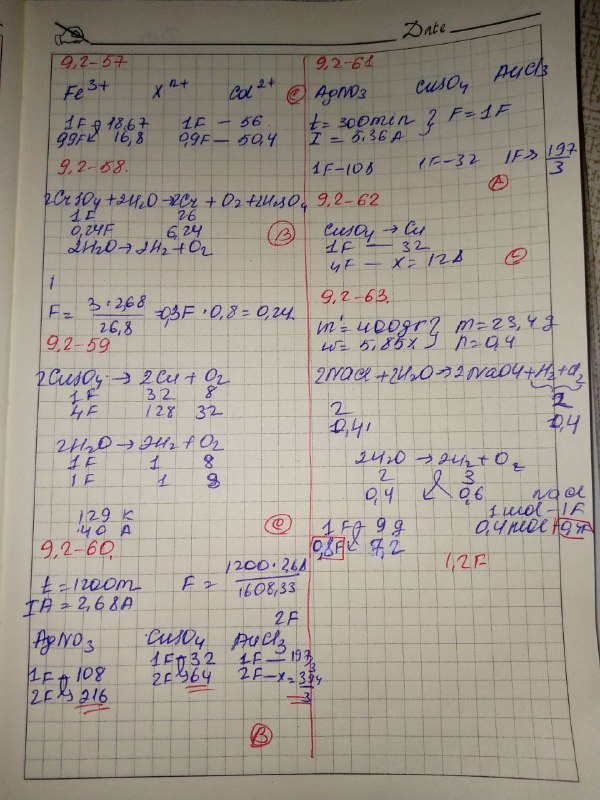 Date
9,2-57
Fe³⁺ Xⁿ⁺ Cd²⁺ C
1F 18,67 1F — 56
0,9F 16,8 0,9F — 50,4
9,2-58.
2CrSO₄ + 2H₂O → 2Cr + O₂ + 2H₂SO₄
1F 26
0,24F 6,24 B
2H₂O → 2H₂ + O₂
F = 3·2,68 / 26,8 = 0,3F · 0,8 = 0,24
9,2-59
2CuSO₄ → 2Cu + O₂
1F 32 8
4F 128 32
2H₂O → 2H₂ + O₂
1F 1 8
1F 1 8
129 K
40 A
9,2-60.
t = 1200m F = 1200·2,68 / 1608,33
IA = 2,68A
2F
AgNO₃ CuSO₄ AuCl₃
1F 108 1F 32 1F — 197/3
2F 216 2F 64 2F — x = 394/3
B
9,2-61
AgNO₃ CuSO₄ AuCl₃
t = 300min } F = 1F
I = 5,36A
1F-108 1F-32 1F → 197/3
A
9,2-62
CuSO₄ → Cu
1F — 32
4F — x = 128
C
9,2-63.
m = 400gr } m = 23,4g
w = 5,85% } n = 0,4
2NaCl + 2H₂O → 2NaOH + H₂ + Cl₂
2 2
0,4 0,4
2H₂O → 2H₂ + O₂
2 3
0,4 0,6 NaCl
1mol-1F
1F 9g 0,4mol 0,4F
0,8F 7,2
1,2F